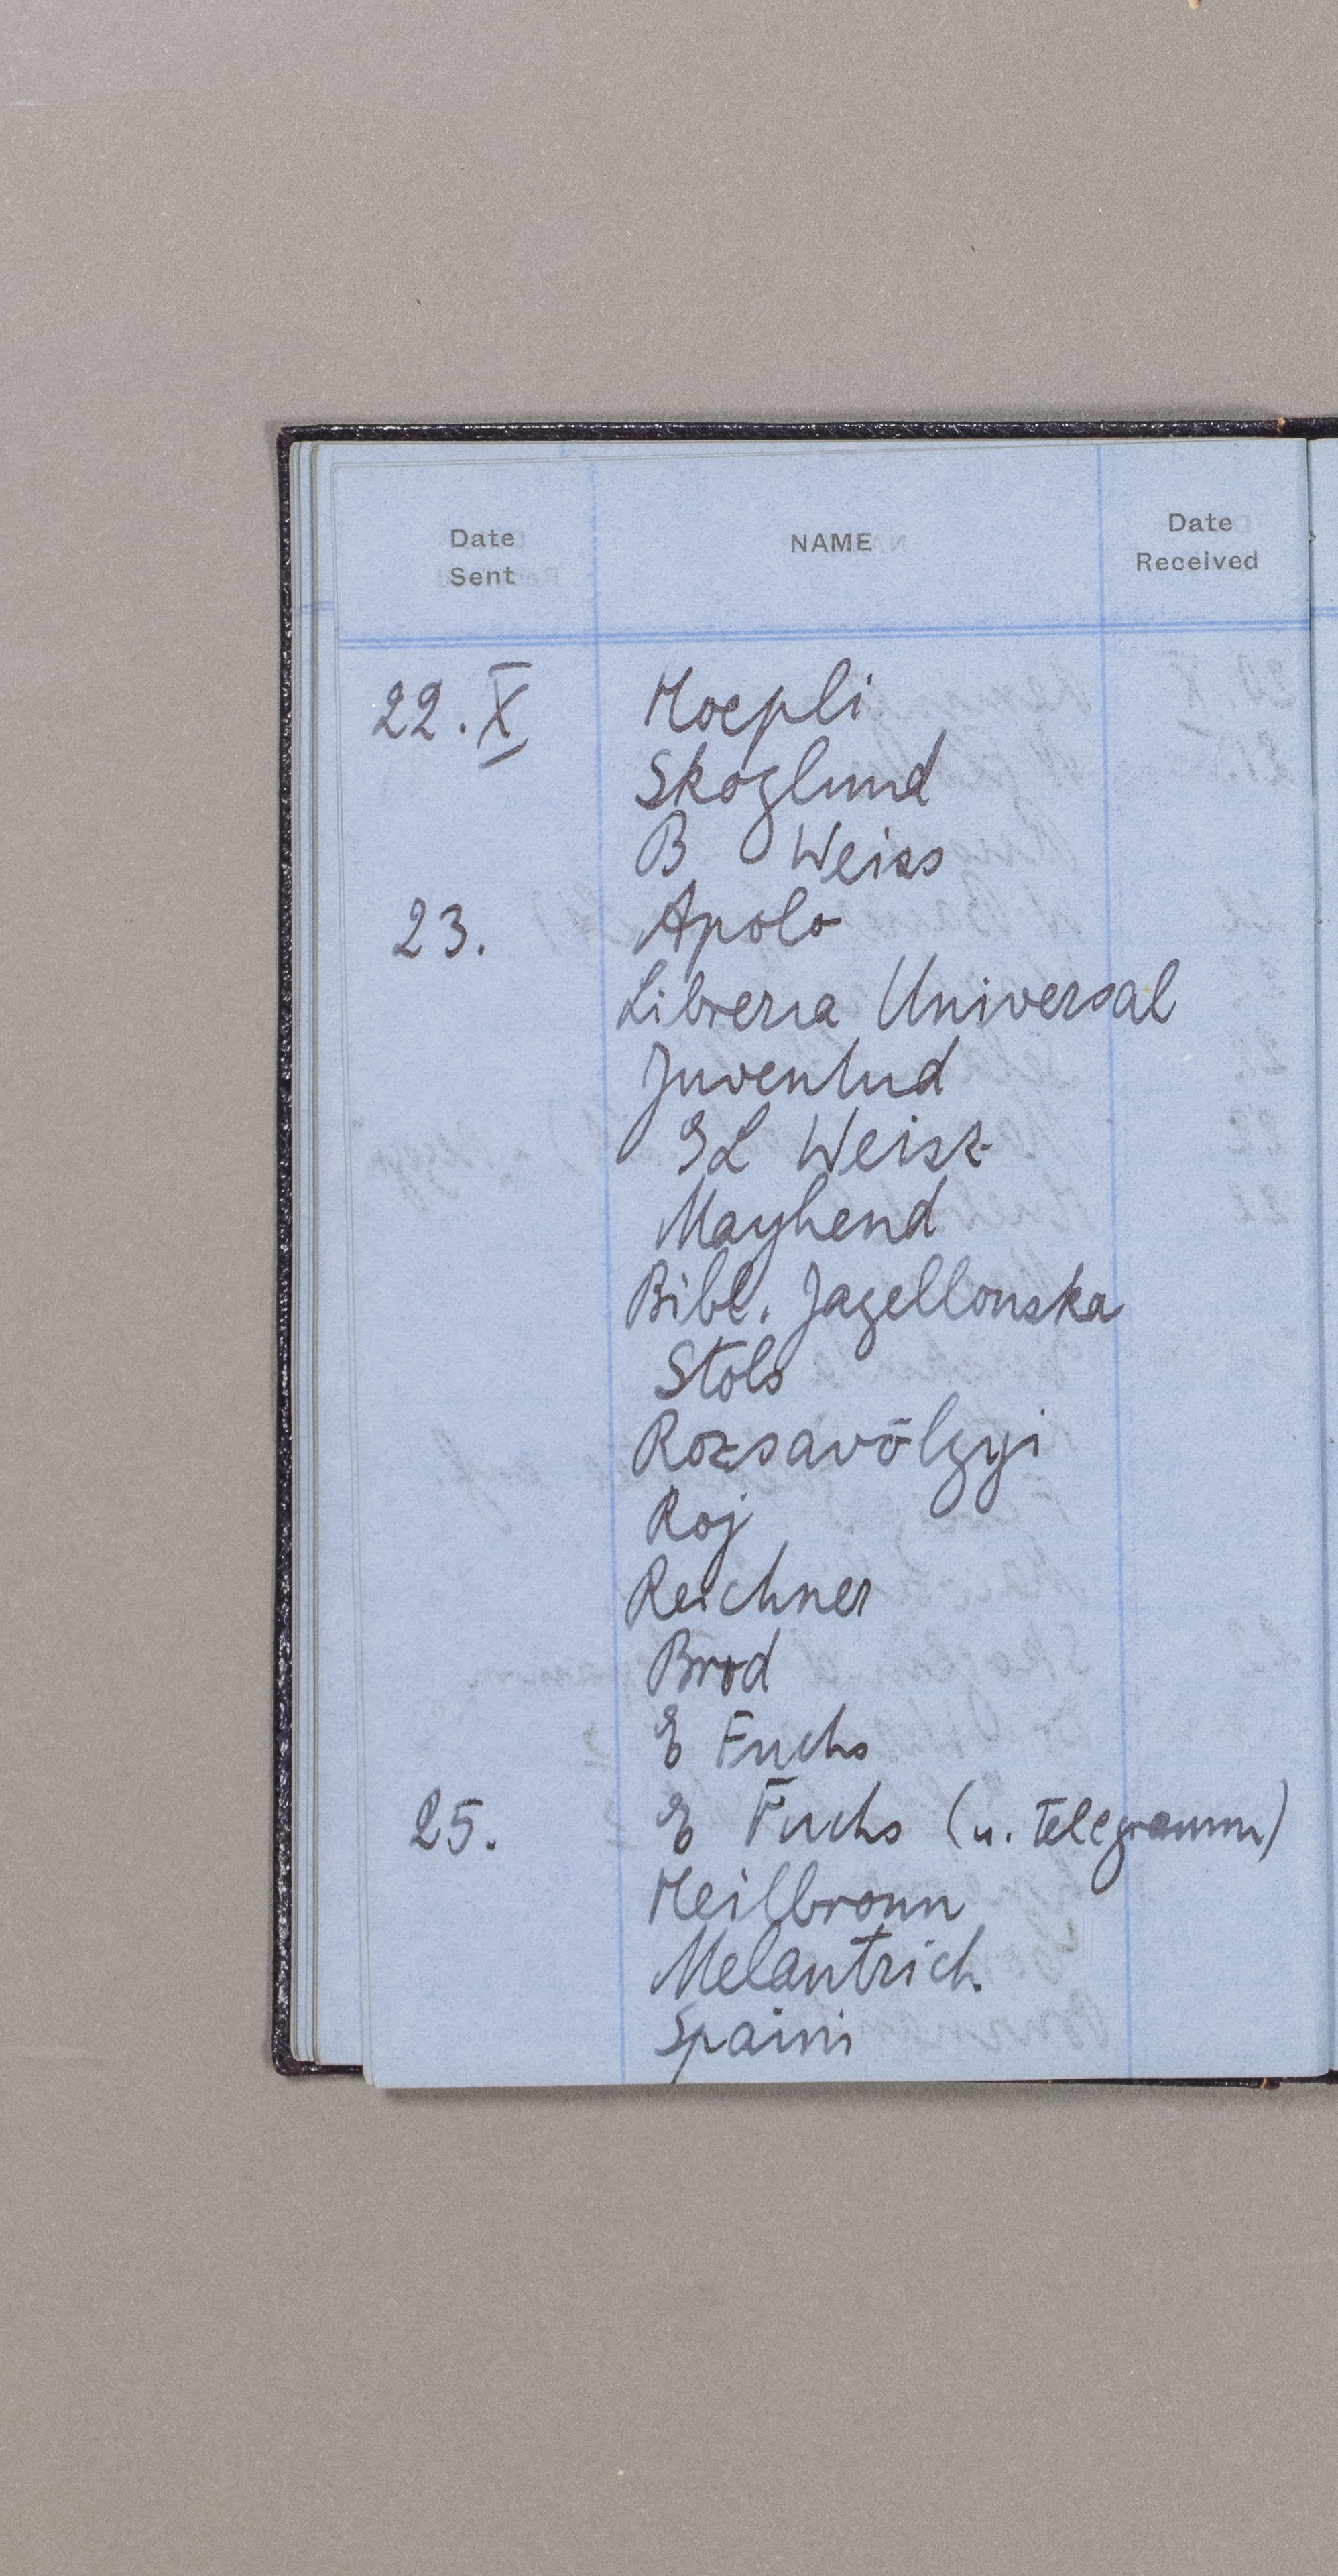 Date Sent NAME Date Received
22. X Hoepli
Skoglund
B Weiss
23. Apolo
Libreria Universal
Juventud
E L Weisz
Mayhend
Bibl. Jagellonska
Stols
Rozsavölgyi
Roj
Reichner
Brod
E Fuchs
25. E Fuchs (u. Telegramm)
Heilbronn
Melantrich
Spaini